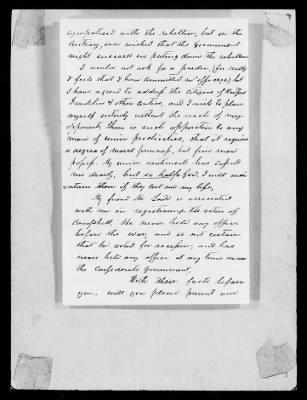 sympathised with the rebellion, but on the
Contrary, ever wished that the Government
might succeed in putting down the rebellion
I would not ask for a pardon, (for really
I feel that I have committed no offence) but
I have agreed to address the citizens of Bedford
Franklin & other Counties, and I wish to place
myself entirely without the reach of my
opponents, there is such opposition to any
man of union proclivities, that it requires
a degree of moral firmness, but few men
possess. My union sentiments have cost
me dearly, but so help God, I will main
tain them if they cost me my life,
My friend Mr is associated
with me in registering the voters of
Campbell, He never held any office
before the war, and is not certain
that he voted for secession, and has
never held any office at any time under
the Confederate Government.
With these facts before
you, will you please present our